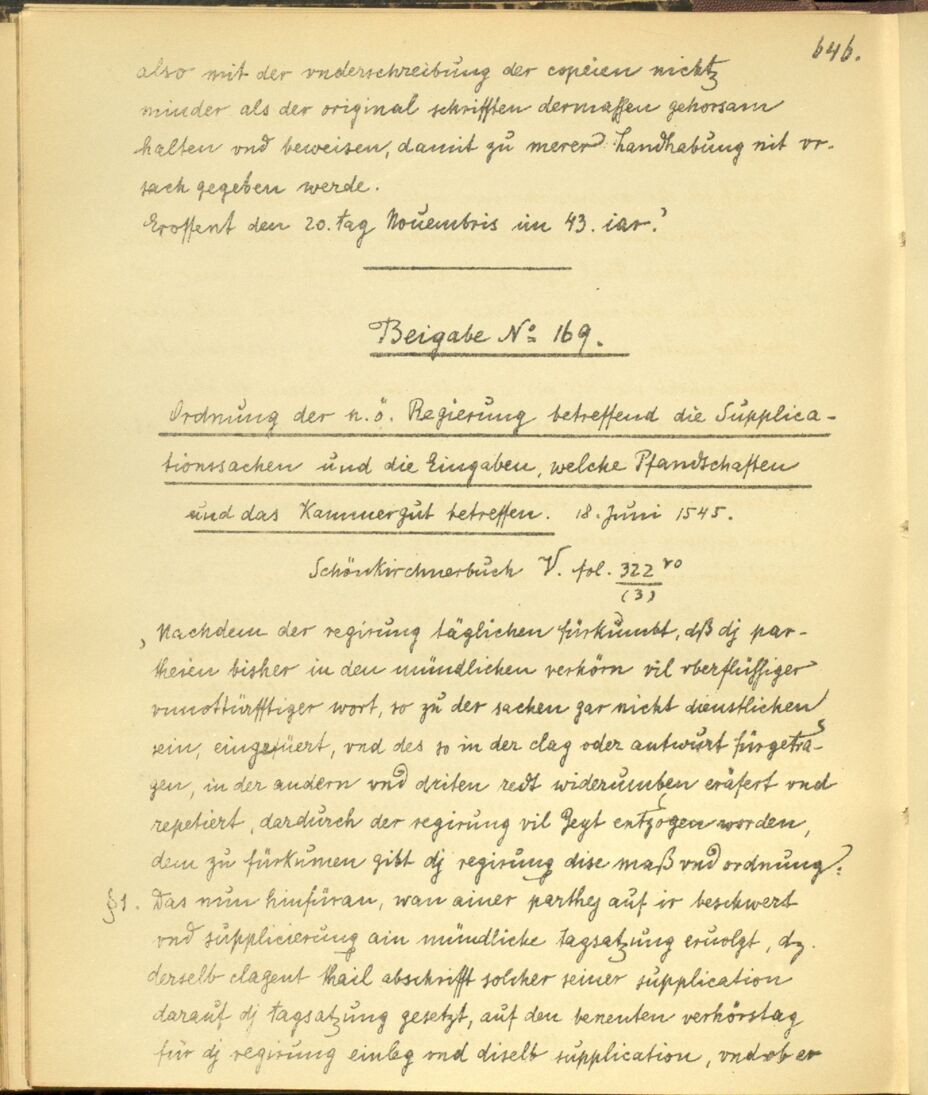 646.
also mit der vnderschreibung der copeien nichtz
minder als der original schrifften dermassen gehorsam
halten vnd beweisen, damit zu merer handhabung nit vr-
sach gegeben werde.
Eroffent den 20. tag Nouembris im 43. iar.
Beigabe No 169.
Ordnung der n.ö. Regierung betreffend die Supplica-
tionssachen und die Eingaben, welche Pfandschaften
und das Kammergut betreffen. 18. Juni 1545.
Schönkirchnerbuch V. fol. 322 ro
(3)
Nachdem der regirung täglichen fürkumbt, dß dj par-
theien bisher in den mündlichen verhörn vil vberflüssiger
vnnottürfftiger wort, so zu der sachen gar nicht dienstlichen
sein, eingefüert, vnd des so in der clag oder antwurt fürgetra-
gen, in der andern vnd driten redt widerumben eräfert vnd
repetiert, dardurch der regirung vil Zeyt entzogen worden,
dem zu fürkumen gibt dj regirung dise maß vnd ordnung:
§1. Das nun hinfüran, wan ainer parthej auf ir beschwert
vnd supplicierung ain mündliche tagsatzung eruolgt, dz
derselb clagent thail abschrifft solcher seiner supplication
darauf dj tagsatzung gesetzt, auf den benenten verhörstag
für dj regirung einleg vnd diselb supplication, vnd ob er